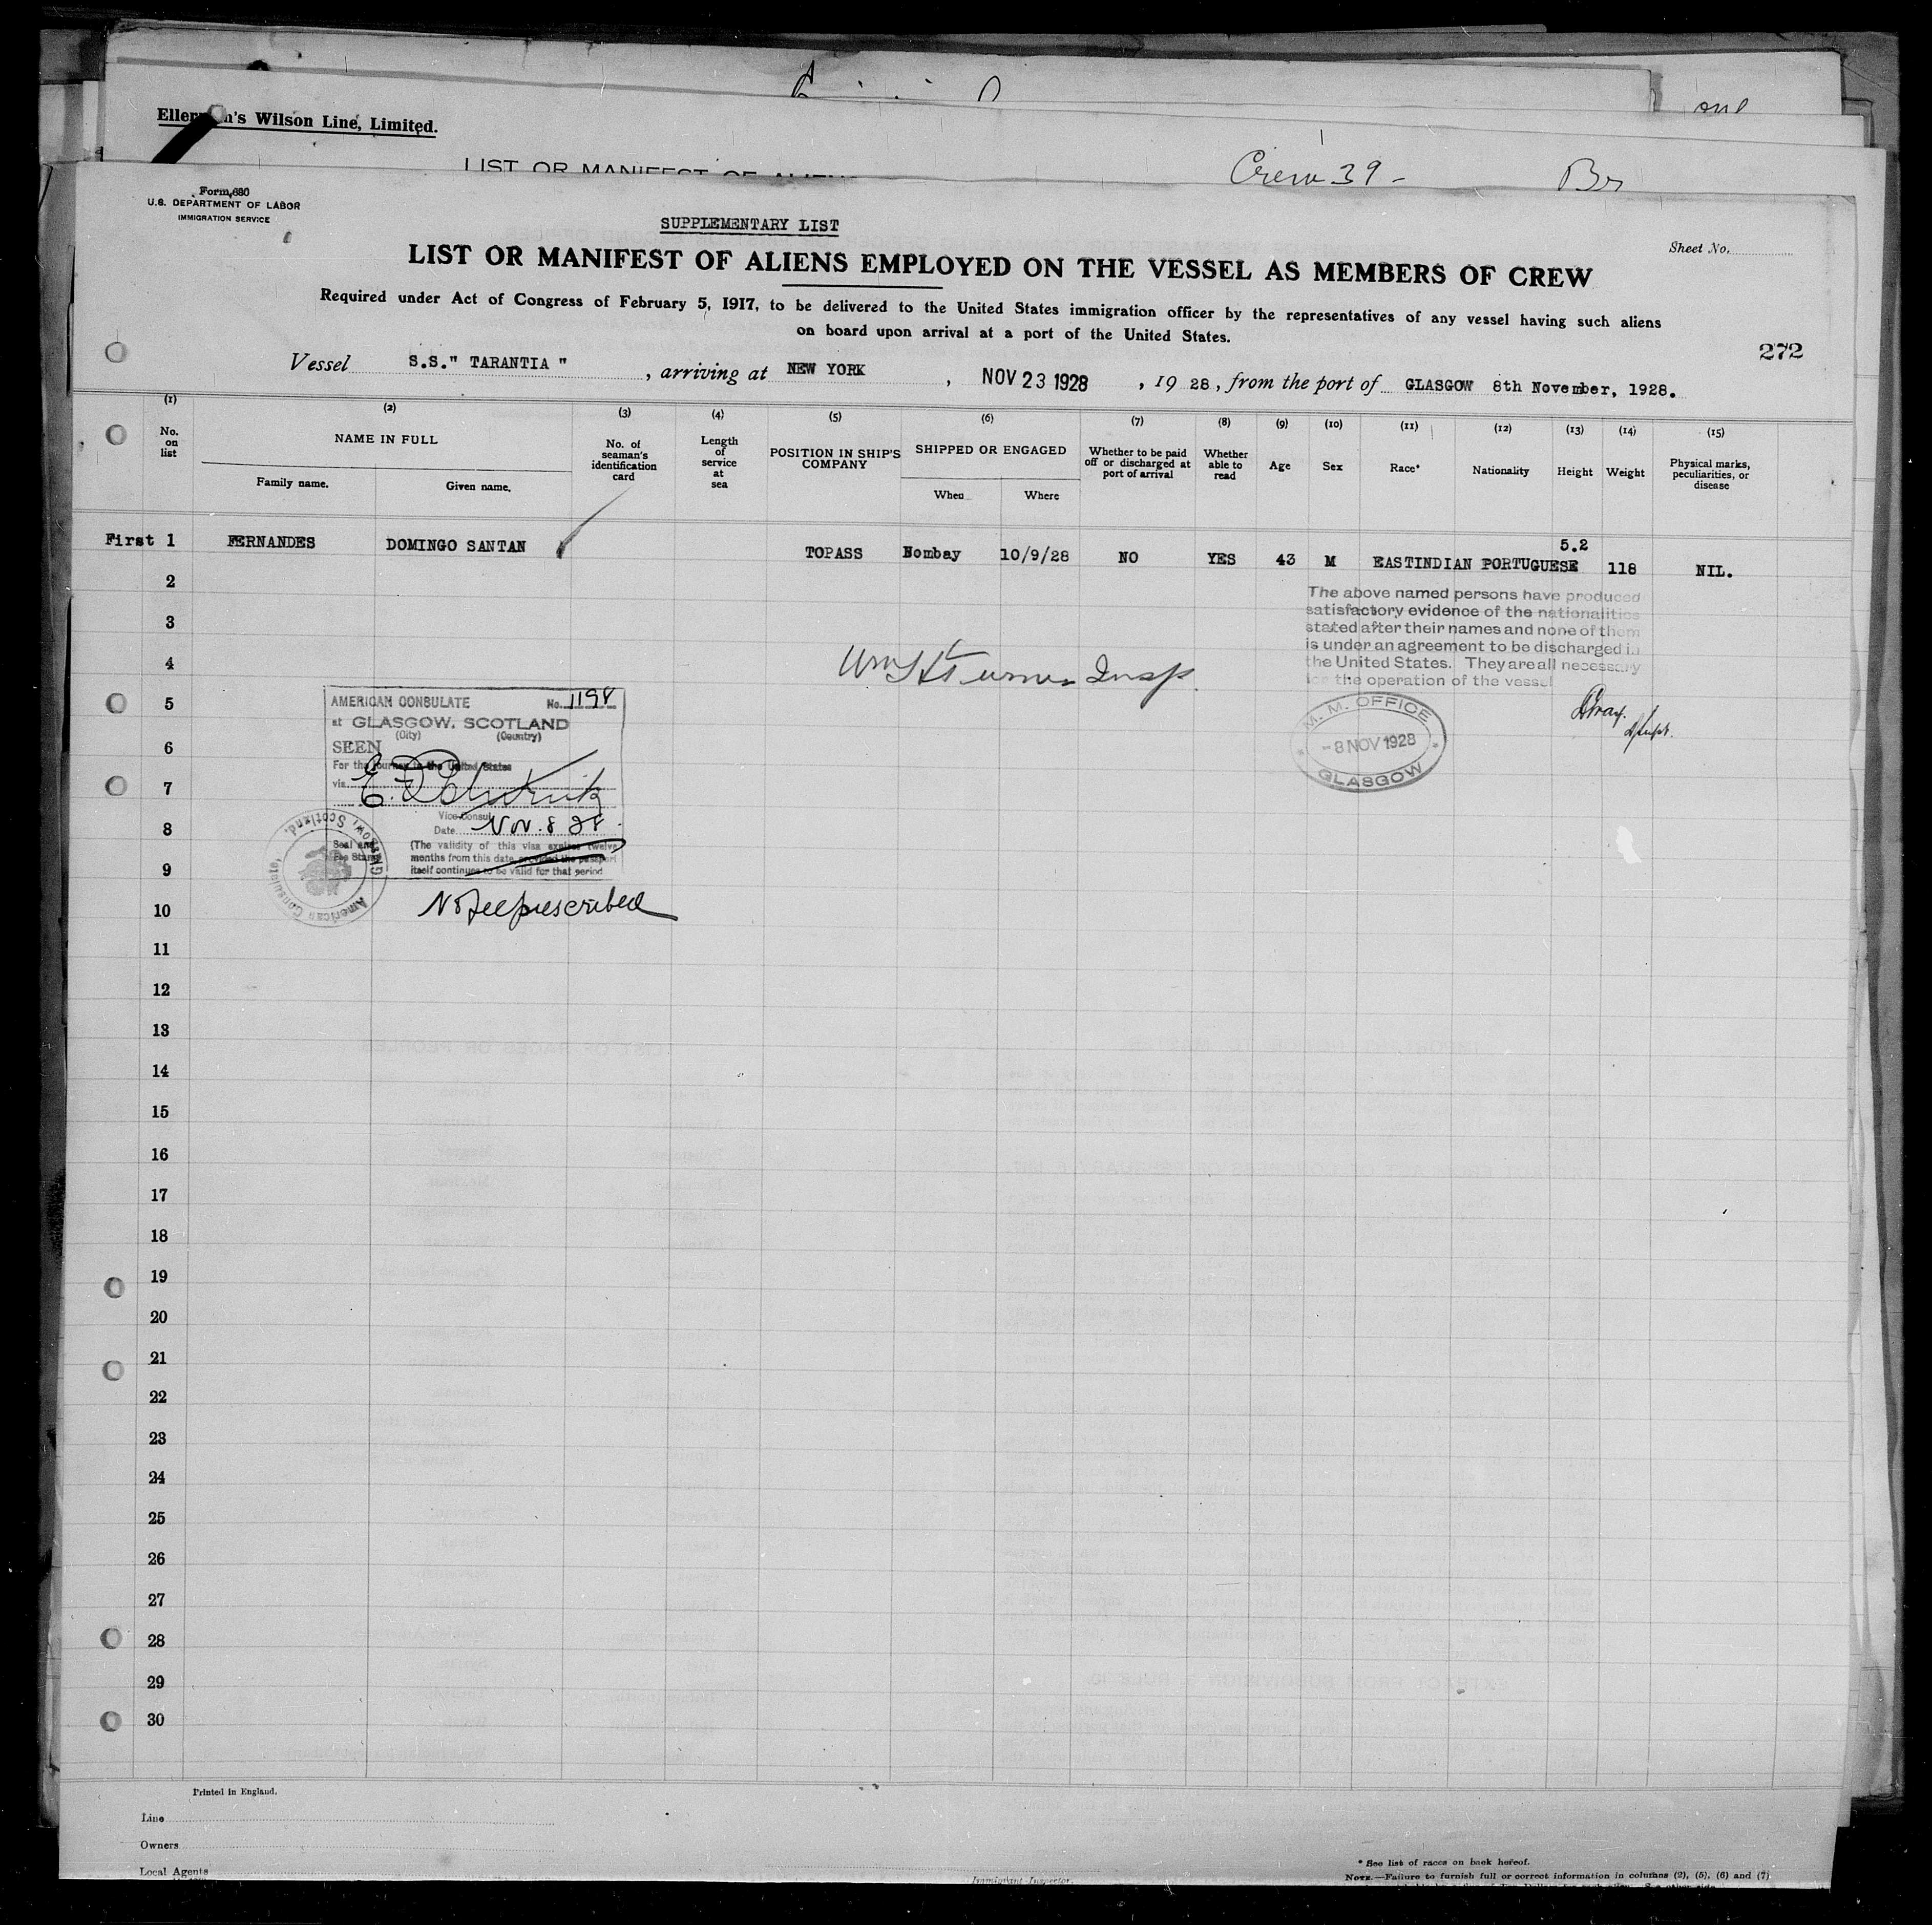 Wilson Line, Limited.
LIST OR MANIFEST OF ALIENS
Crew 39 -
Br
Form 680
U.S. DEPARTMENT OF LABOR
IMMIGRATION SERVICE
SUPPLEMENTARY LIST
Sheet No.
LIST OR MANIFEST OF ALIENS EMPLOYED ON THE VESSEL AS MEMBERS OF CREW
Required under Act of Congress of February 5, 1917, to be delivered to the United States immigration officer by the representatives of any vessel having such aliens
on board upon arrival at a port of the United States.
272
Vessel S.S." TARANTIA " , arriving at NEW YORK , NOV 23 1928 , 19 28, from the port of GLASGOW 8th November, 1928.
(1) (2) (3) (4) (5) (6) (7) (8) (9) (10) (11) (12) (13) (14) (15)
No. on list
NAME IN FULL
Family name. Given name.
No. of seaman's identification card
Length of service at sea
POSITION IN SHIP'S COMPANY
SHIPPED OR ENGAGED
When Where
Whether to be paid off or discharged at port of arrival
Whether able to read
Age
Sex
Race*
Nationality
Height
Weight
Physical marks, peculiarities, or disease
First 1 FERNANDES DOMINGO SANTAN TOPASS Bombay 10/9/28 NO YES 43 M EASTINDIAN PORTUGUESE 5.2 118 NIL.
2
The above named persons have produced
satisfactory evidence of the nationalities
3
stated after their names and none of them
is under an agreement to be discharged in
4
the United States. They are all necessary
for the operation of the vessel
Insp.
5
AMERICAN CONSULATE No. 1198
at GLASGOW, SCOTLAND
(City) (Country)
M. M. OFFICE
- 8 NOV 1928
GLASGOW
6
SEEN
For the journey to the United States
7
via
8
Vice Consul
Date Nov. 8 28
American Consulate, Glasgow, Scotland.
Seal and
Fee Stamp
(The validity of this visa expires twelve
months from this date provided the passport
9
itself continues to be valid for that period
10
No fee prescribed
11
12
13
14
15
16
17
18
19
20
21
22
23
24
25
26
27
28
29
30
Printed in England.
Line
Owners
Local Agents
Immigrant Inspector.
* See list of races on back hereof.
NOTE.—Failure to furnish full or correct information in columns (2), (5), (6) and (7)